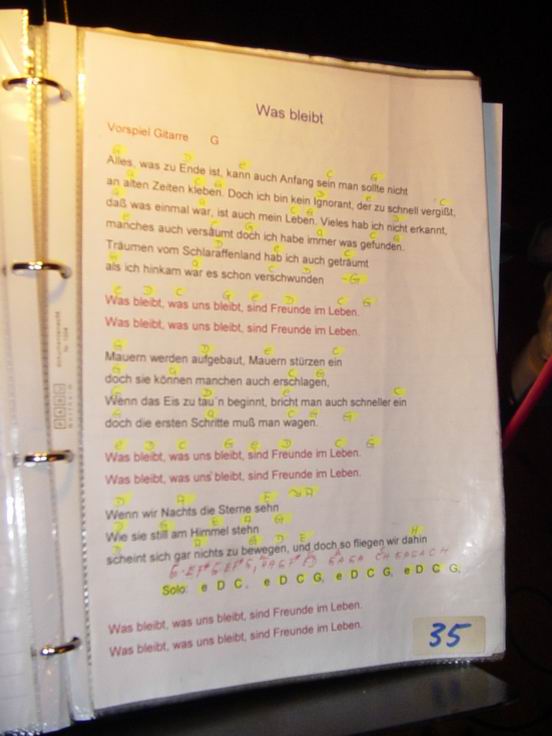 Was bleibt
Vorspiel Gitarre G
Alles, was zu Ende ist, kann auch Anfang sein man sollte nicht
an alten Zeiten kleben. Doch ich bin kein Ignorant, der zu schnell vergißt,
daß was einmal war, ist auch mein Leben. Vieles hab ich nicht erkannt,
manches auch versäumt doch ich habe immer was gefunden.
Träumen vom Schlaraffenland hab ich auch geträumt
als ich hinkam war es schon verschwunden -G
e D C G e D C G
Was bleibt, was uns bleibt, sind Freunde im Leben.
Was bleibt, was uns bleibt, sind Freunde im Leben.
G D e C
Mauern werden aufgebaut, Mauern stürzen ein
doch sie können manchen auch erschlagen,
Wenn das Eis zu tau´n beginnt, bricht man auch schneller ein
doch die ersten Schritte muß man wagen.
e D C G e D C G
Was bleibt, was uns bleibt, sind Freunde im Leben.
Was bleibt, was uns bleibt, sind Freunde im Leben.
Wenn wir Nachts die Sterne sehn
Wie sie still am Himmel stehn
scheint sich gar nichts zu bewegen, und doch so fliegen wir dahin
Solo: e D C, e D C G, e D C G, e D C G,
Was bleibt, was uns bleibt, sind Freunde im Leben.
Was bleibt, was uns bleibt, sind Freunde im Leben.
35